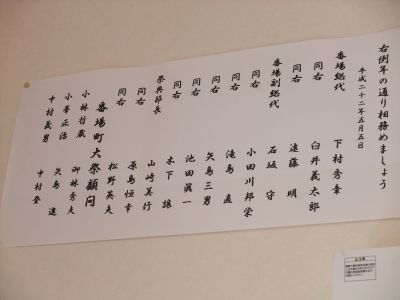 右例年の通り相務めましょう
平成二十二年五月五日
番場総代 下村秀幸
同右 臼井義太郎
同右 遠藤明
番場副総代 石坂守
同右 小田川邦栄
同右 滝島直
同右 矢島三男
同右 池田眞一
同右 木下譲
祭典部長 山崎美行
同右 原島恒幸
同右 松野英夫
番場町大祭顧問
小林哲蔵 御林秀夫
小峯正治 矢島進
中村義男 中村登